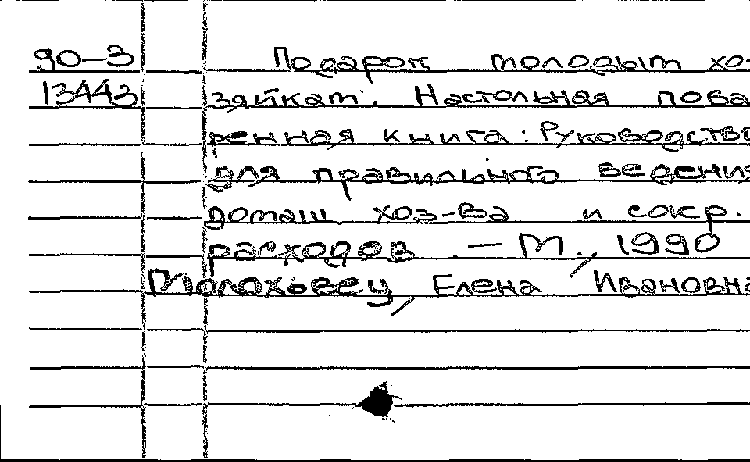 90-3 Подарок молодым хо-
13443 зяйкам. Настольная пова
ренная книга: Руководство
для правильного ведения
домаш. хоз-ва и сокр.
расходов. - М., 1990
Молоховец, Елена Ивановна